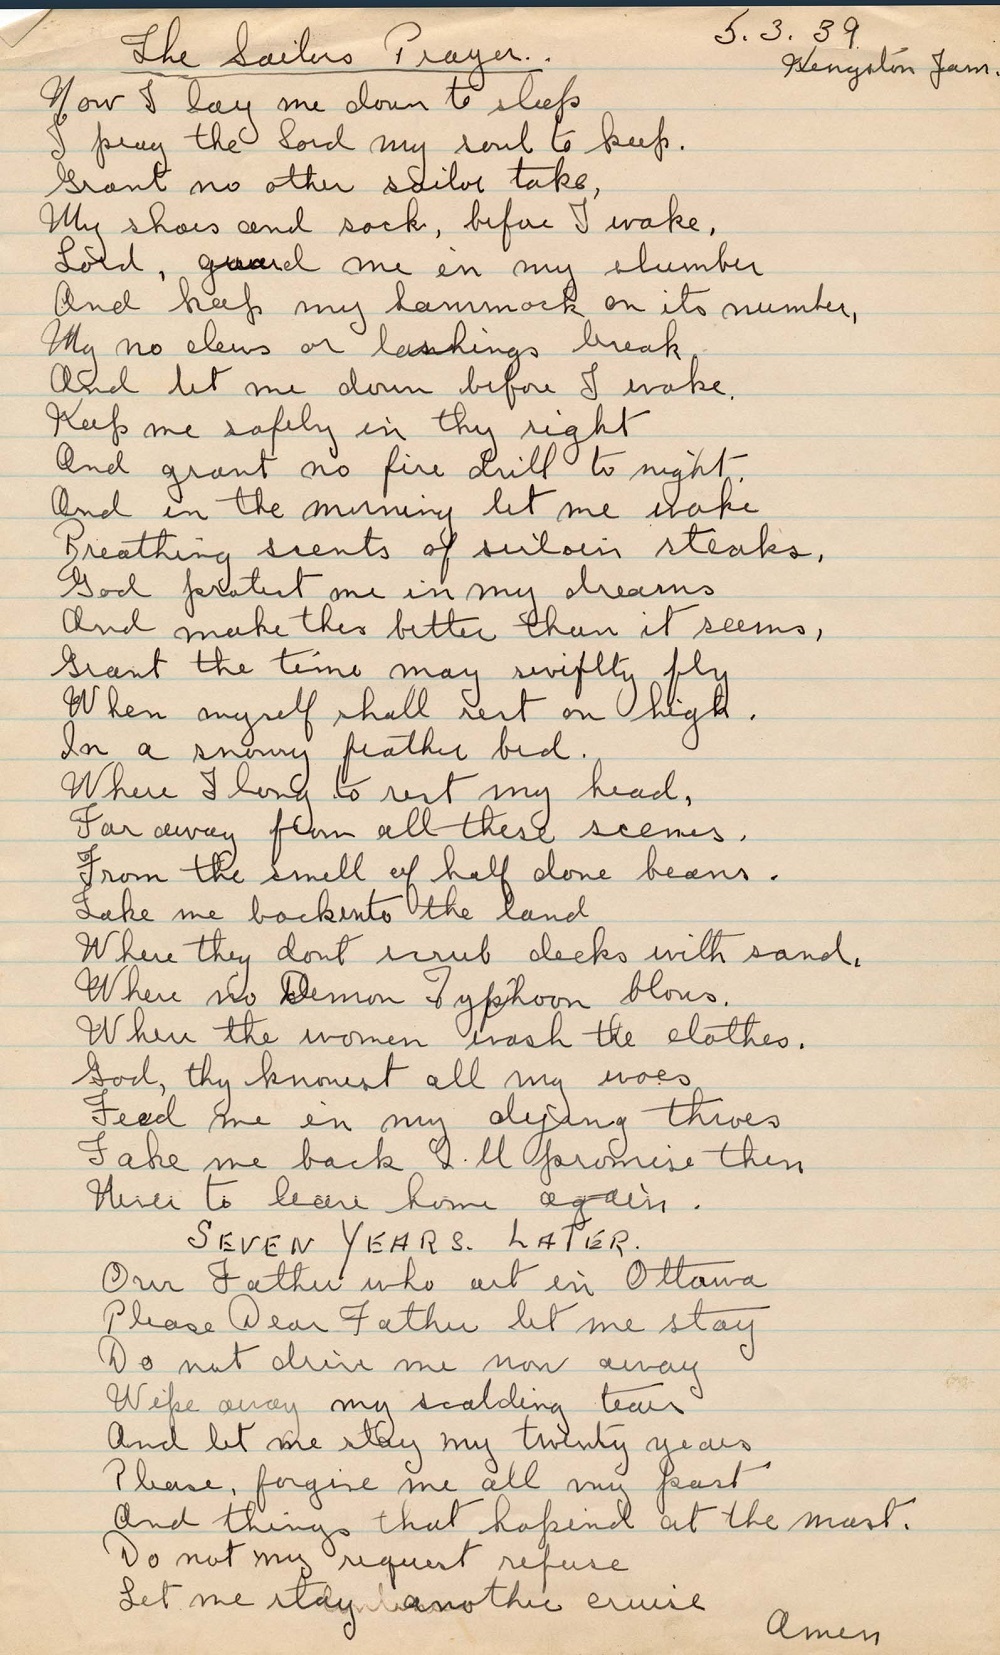 5.3.39
The Sailors Prayer..
Kengston Jam.
Now I lay me down to sleep
I pray the Lord my soul to keep.
Grant no other sailor take,
My shoes and sock, before I wake,
Lord, guard me in my slumber
And keep my hammock on its number,
My no clews or lashings break
And let me down before I wake.
Keep me safely in thy sight
And grant no fire drill to night.
And in the morning let me wake
Breathing scents of sirloin steaks,
God protect me in my dreams
And make this better than it seems,
Grant the time may swiftly fly
When myself shall rest on high.
In a snowy feather bed.
Where I long to rest my head,
Far away from all these scenes.
From the smell of half done beans.
Take me back into the land
Where they dont scrub decks with sand.
Where no Demon Typhoon blows.
Where the women wash the clothes.
God, thy knowest all my woes
Feed me in my dying throes
Take me back I.ll promise then
Never to leave home again.
SEVEN YEARS. LATER.
Our Father who art in Ottawa
Please Dear Father let me stay
Do not drive me now away
Wipe away my scalding tears
And let me stay my twenty years
Please, forgive me all my past
And things that hapend at the mast.
Do not my request refuse
Let me stay another cruise
Amen